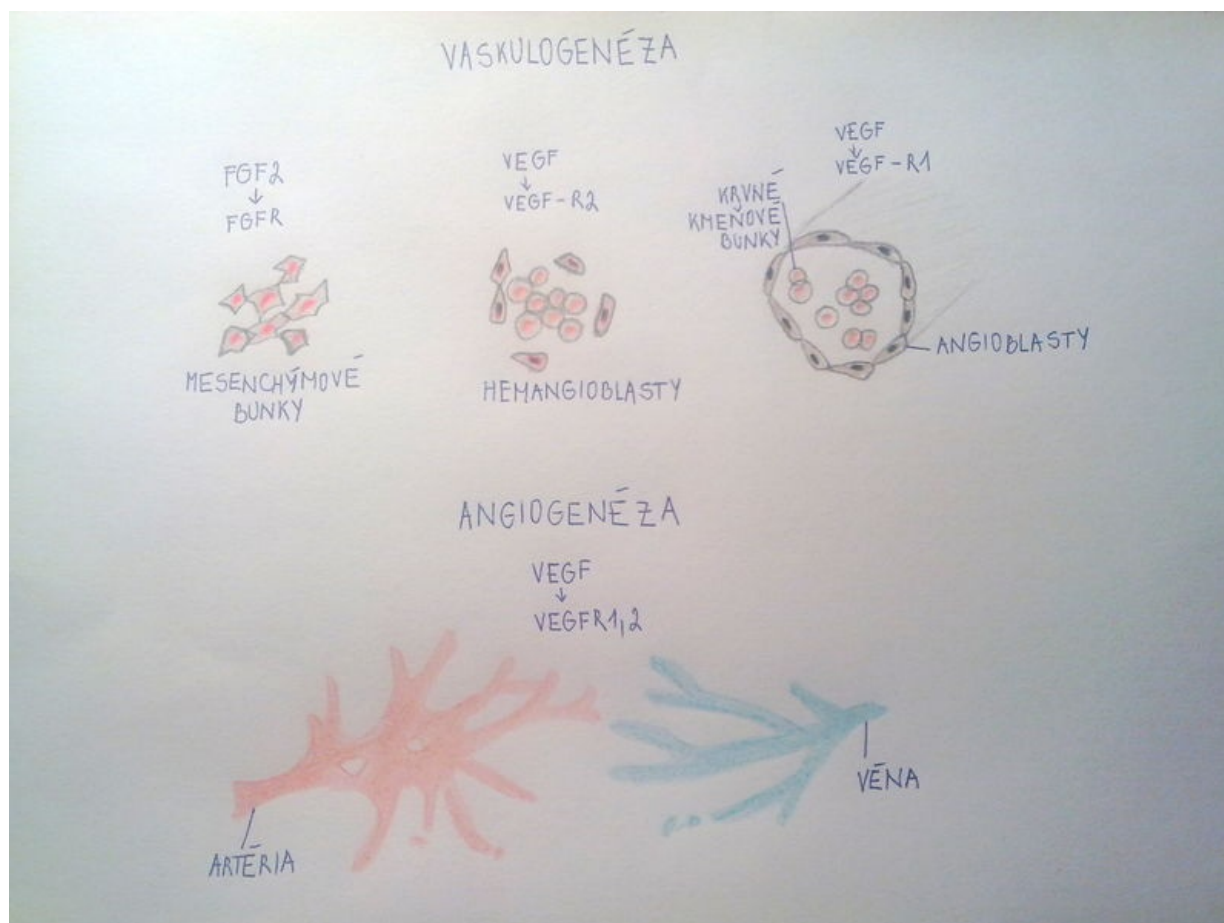 VASKULOGENÉZA
FGF2
↓
FGFR
MESENCHÝMOVÉ
BUNKY
VEGF
↓
VEGF-R2
HEMANGIOBLASTY
VEGF
↓
VEGF-R1
KRVNÉ
KMEŇOVÉ
BUNKY
ANGIOBLASTY
ANGIOGENÉZA
VEGF
↓
VEGFR1,2
ARTÉRIA
VÉNA